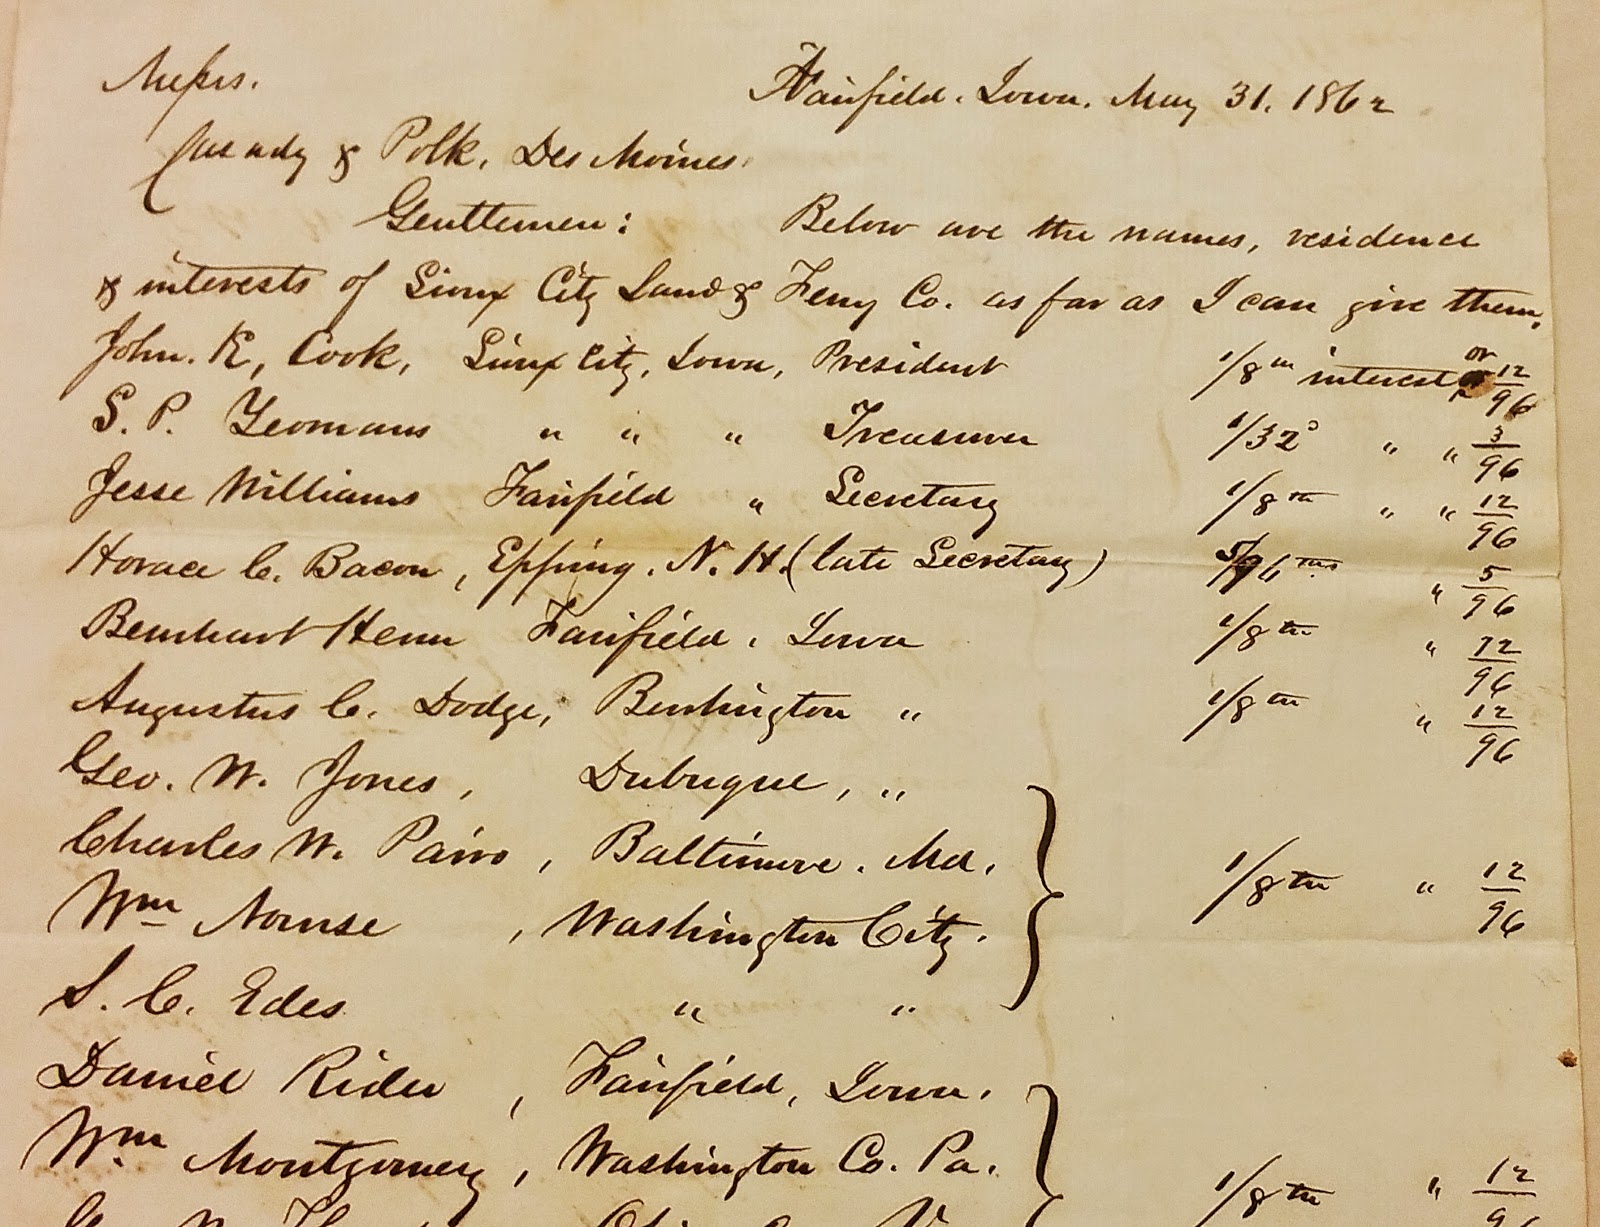 Messrs. Fairfield. Iowa. May 31. 1862
Casady & Polk, Des Moines.
Gentlemen: Below are the names, residence
& interests of Sioux City Land & Ferry Co. as far as I can give them.
John. K, Cook, Sioux City, Iowa, President 1/8th interest or 12/96
S. P. Yeomans " " " Treasurer 1/32d " " 3/96
Jesse Williams Fairfield " Secretary 1/8th " " 12/96
Horace C. Bacon, Epping. N. H. (late Secretary) 5/96ths " 5/96
Bernhart Henn Fairfield, Iowa 1/8th " 12/96
Augustus C. Dodge, Burlington " 1/8th " 12/96
Geo. W. Jones, Dubuque, "
Charles W. Pairo, Baltimore. Md.
Wm Nourse, Washington City. 1/8th " 12/96
S. C. Edes " "
Daniel Rider, Fairfield, Iowa.
Wm. Montgomery, Washington Co. Pa. 1/8th " 12/96